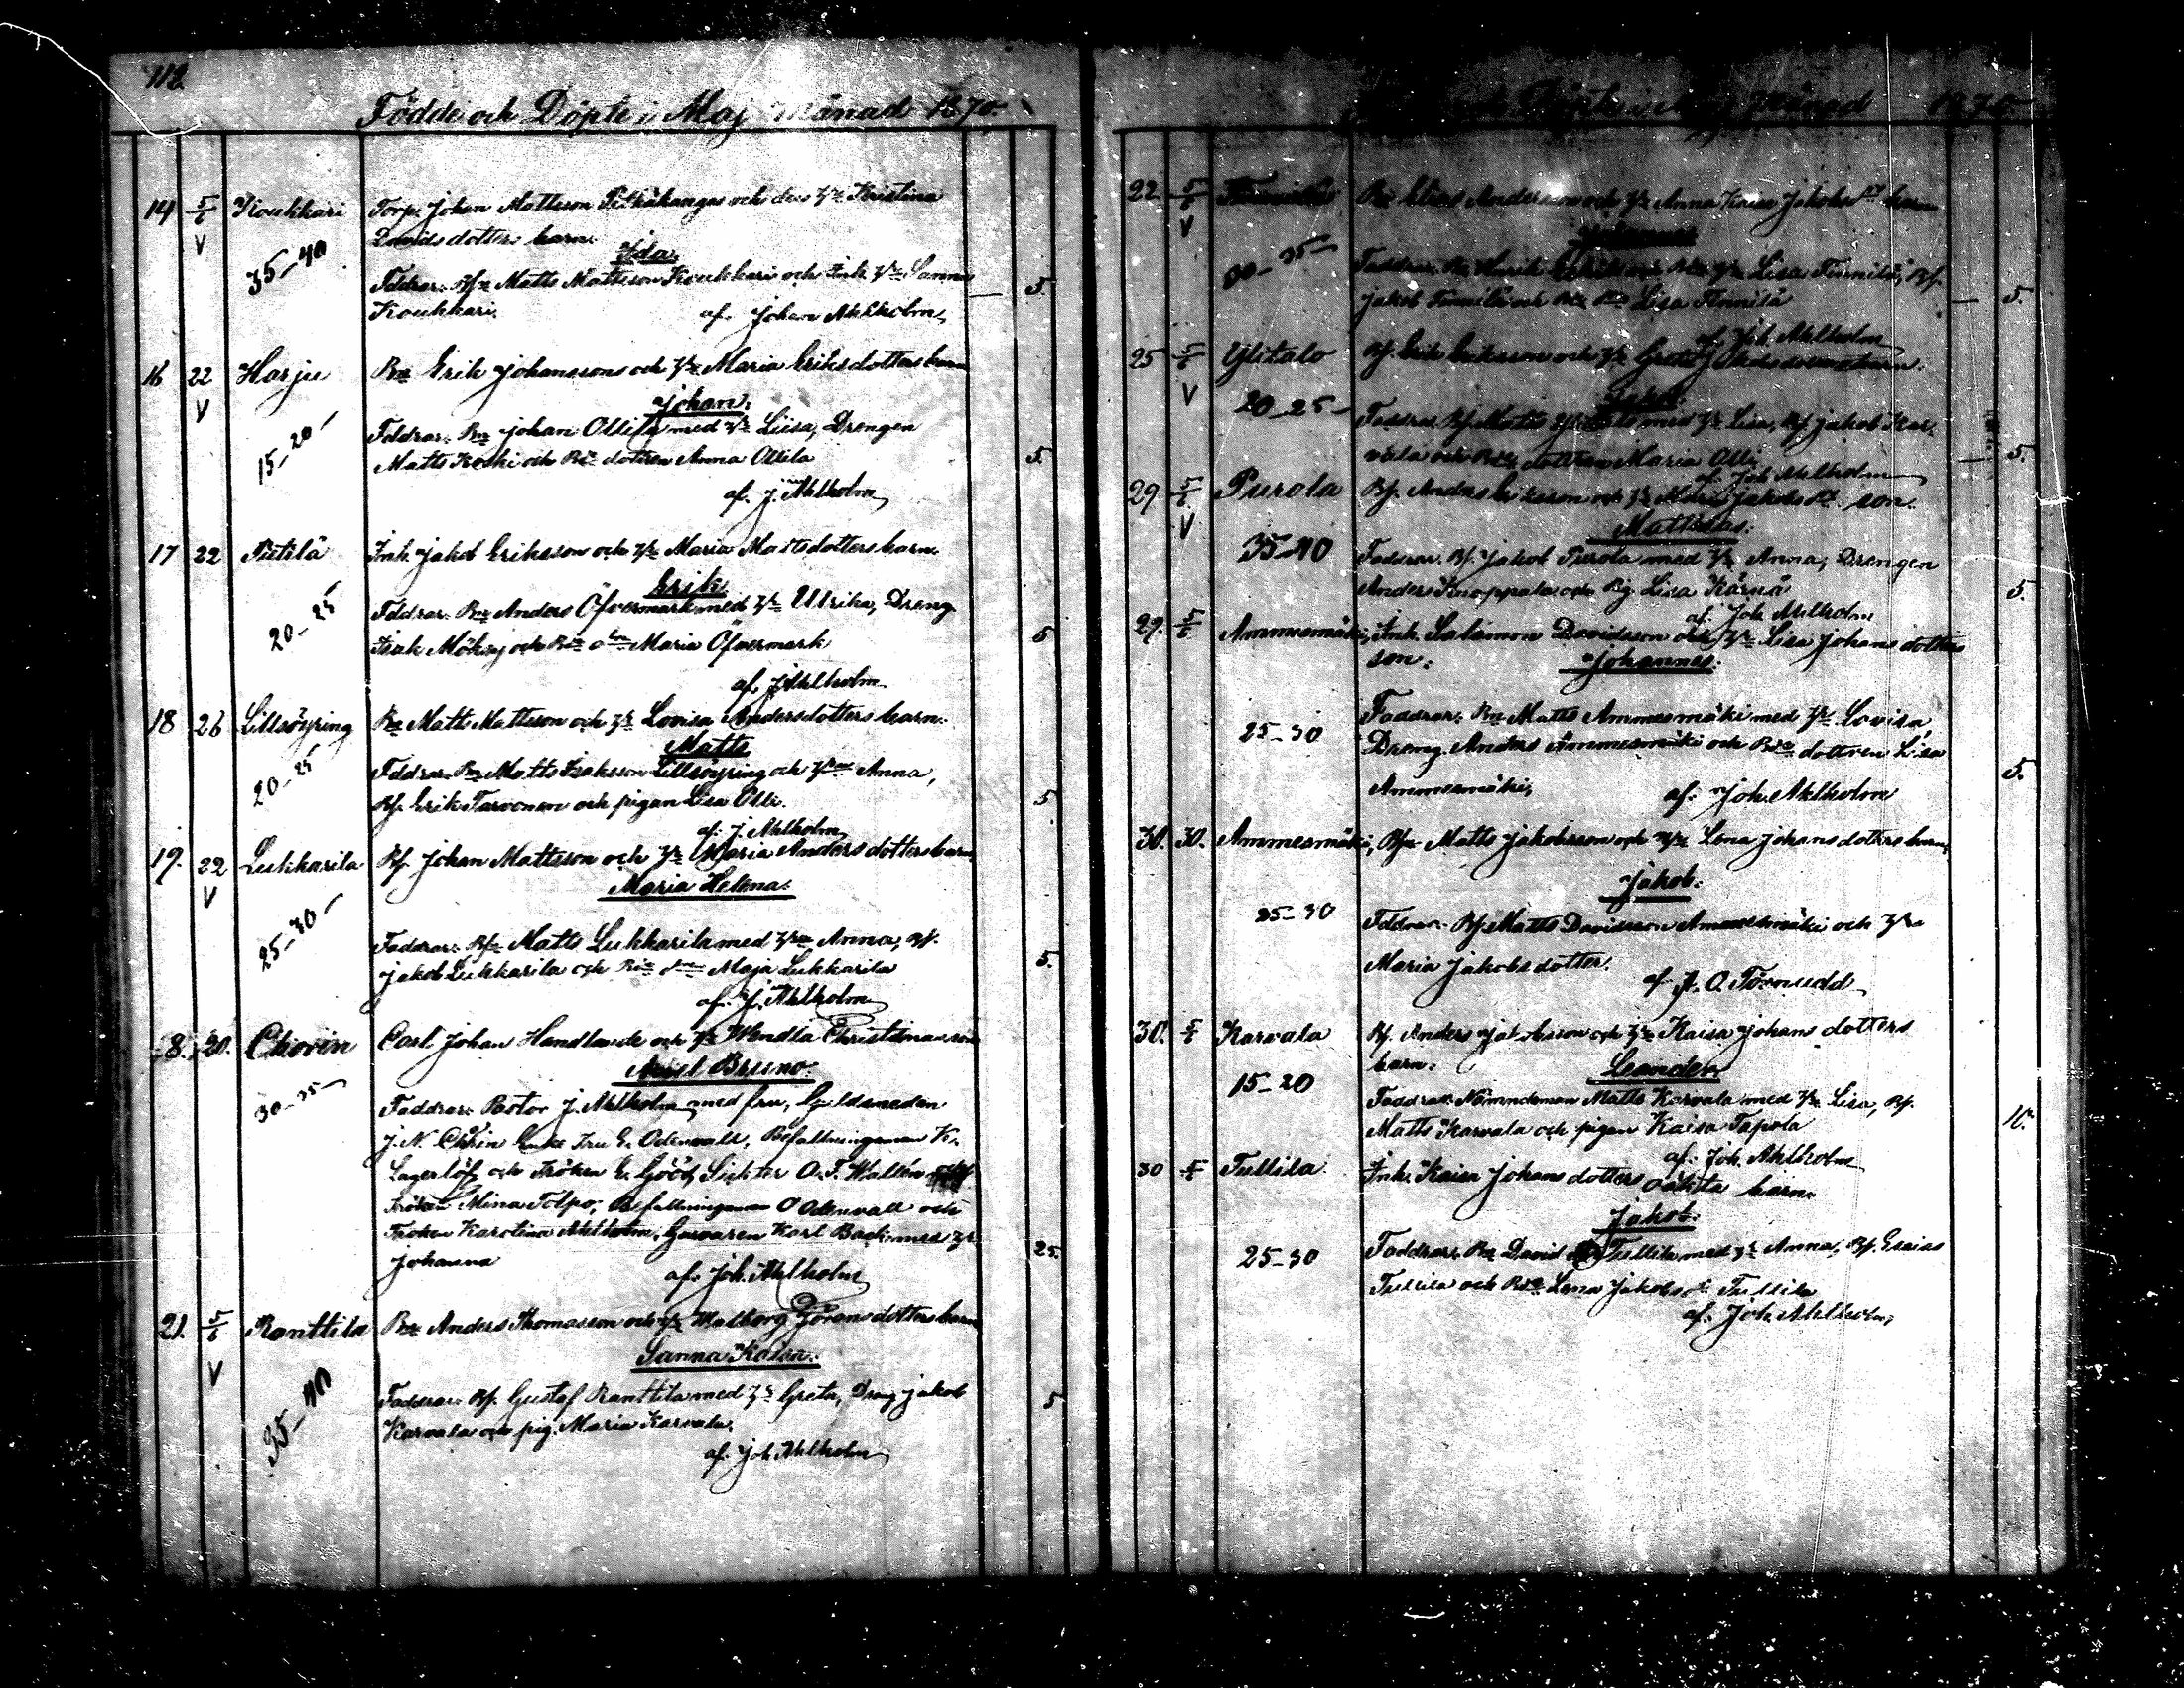 112.
Födde och Döpte i Maj månad 1870.
14 5/6 Koukkari Torp. Johan Mattsson Pitkäkangas och dess h:u Kristina
V Davidsdotters barn.
35-40 Ida.
Fddrar: Bf Matts Mattsson Koukkari och Inh. h:u Sanna
Koukkari. 5.
af. Johan Ahlholm
16 22 Harju Bn Erik Johanssons och h:u Maria Eriksdotters barn
V Johan.
15-20 Fddrar: Bn Johan Ollila med h:u Liisa, Drengen
Matts Koski och Bn dottren Anna Ollila 5.
af. J. Ahlholm
17 22 Pietilä Inh. Jakob Eriksson och h:u Maria Mattsdotters barn.
Erik.
20-25 Fddrar: Bn Anders Öfvermark med h:u Ulrika, Dreng
Isak Möksy och Bn d:n Maria Öfvermark 5
af. J Ahlholm
18 26 Lillsöyring Bn Matts Mattsson och h:u Lovisa Andersdotters barn.
Matts
20-25 Fddrar: Bn Matts Isaksson Lillsöyring och h:u Anna,
Bf. Erik Tarvonen och pigan Lisa Olli. 5
af. J. Ahlholm
19. 22 Lukkarila Bf Johan Mattsson och h:u Maria Andersdotters barn
V Maria Helena.
25-30 Faddrar: Bf Matts Lukkarila med h:u Anna, Bf.
Jakob Lukkarila och Bn d:n Maja Lukkarila 5.
af. J. Ahlholm
8. 20. Chorin Carl Johan Handlande och h:u Wendla Christina son
Bruno.
30-35 Faddrar: Pastor J. Ahlholm med fru, Guldsmeden
J. N. Enke Fru E. Odenvall, Befallningsman K.
Lagerlöf och Fröken E. Gööd, O. F. Wallén
Fröken Mina Tolpo, Befallningsman O Odenvall och
Fröken Karolina Ahlholm, Garvaren Karl Back med h:u
Johanna 25.
af. Joh. Ahlholm
21. 5/6 Ranttila Bn Anders Thomasson och h:u Walborg Göransdotters barn
V Sanna Kaisa.
35-40 Faddrar: Bf. Gustaf Ranttila med h:u Greta, Dreng Jakob
Karvala och pig. Maria Karvala. 5
af. Joh Ahlholm
månad 1870
22 5/6 Bn Elias Andersson och h:u Anna Kaisa Jakobs dr barn
V
30-35 Faddrar: Bn Henrik h:u Lisa Finnilä, Bf.
Jakob Finnilä och Bn Lisa Finnilä 5.
af. Joh. Ahlholm
25 5/6 Ylitalo Bf. Erik Eriksson och h:u Greta Jakobsdotters barn.
V Jakob.
20-25 Faddrar Bf. Matts Ylitalo med h:u Lisa, Bf. Jakob Kar-
vala och Bn dottren Maria Olli 5.
af. Joh Ahlholm
29 5/6 Purola Bf. Anders Eriksson och h:u Maria Jakobs dr. son.
V Matthias.
35-40 Faddrar. Bf. Jakob Purola med h:u Anna, Drengen
Anders Knuppala och Pig. Lisa Kärnä 5.
af. Joh. Ahlholm
29. 5/6 Ammesmäki, Inh. Salomon Davidsson och h:u Lisa Johansdotters
son. Johannes.
25-30 Faddrar. Bn Matts Ammesmäki med h:u Lovisa,
Dreng. Anders Ammesmäki och Bn dottren Lisa
Ammesmäki, 5.
af. Joh. Ahlholm
30. 30. Ammesmäki, Bf Matts Jakobsson och h:u Lena Johansdotters barn.
Jakob.
25-30 Fddrar. Bf. Matts Davidsson Ammesmäki och h:u
Maria Jakobsdotter.
af A. O. Törnudd
30. 5/6 Karvala Bf. Anders Jakobsson och h:u Kaisa Johans dotters
barn. Leander
15-20 Faddrar. Nämndeman Matts Karvala med h:u Lisa, Bf.
Matts Karvala och pigan Kaisa Tapola 10.
af. Joh. Ahlholm
30 5/6 Tullila Inh. Kaisa Johans dotters oäkta barn.
Jakob.
25-30 Faddrar. Bn David Tullila med h:u Anna, Bf. Esaias
Tullila och Bn Lena Jakobs d. Tullila
af. Joh. Ahlholm